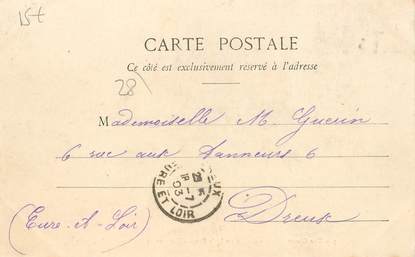 15t
CARTE POSTALE
Ce côté est exclusivement reservé à l'adresse
28
Mademoiselle M. Guerin
6 rue aux Tanneurs 6
DREUX
7
03
EURE ET LOIR
Dreux
(Eure-et-Loir)